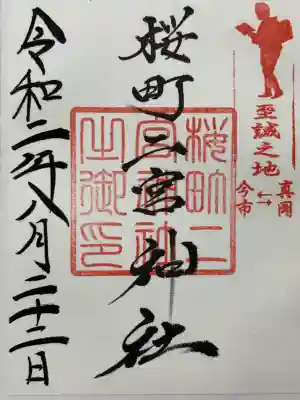 至誠之地
真岡
⇆
今市
桜町二宮神社
桜町二
宮神社
之御印
令和二年八月二十二日